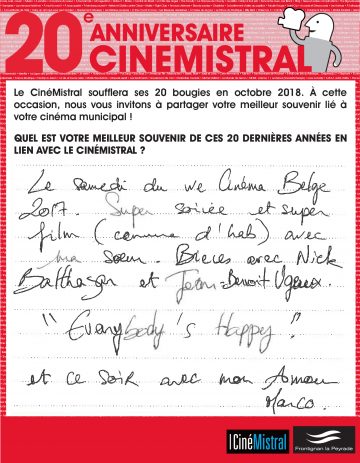 20e ANNIVERSAIRE
CINEMISTRAL
Le CinéMistral soufflera ses 20 bougies en octobre 2018. À cette
occasion, nous vous invitons à partager votre meilleur souvenir lié à
votre cinéma municipal !
QUEL EST VOTRE MEILLEUR SOUVENIR DE CES 20 DERNIÈRES ANNÉES EN
LIEN AVEC LE CINÉMISTRAL ?
Le samedi du we Cinéma Belge
2017. Super soirée et super
film (comme d'hab) avec
ma sœur. Bières avec Nick
Balthazar et Jean-Benoit Ugeux.
"Everybody's Happy!"
et ce soir avec mon Amour
Marco.
CinéMistral
Frontignan la Peyrade